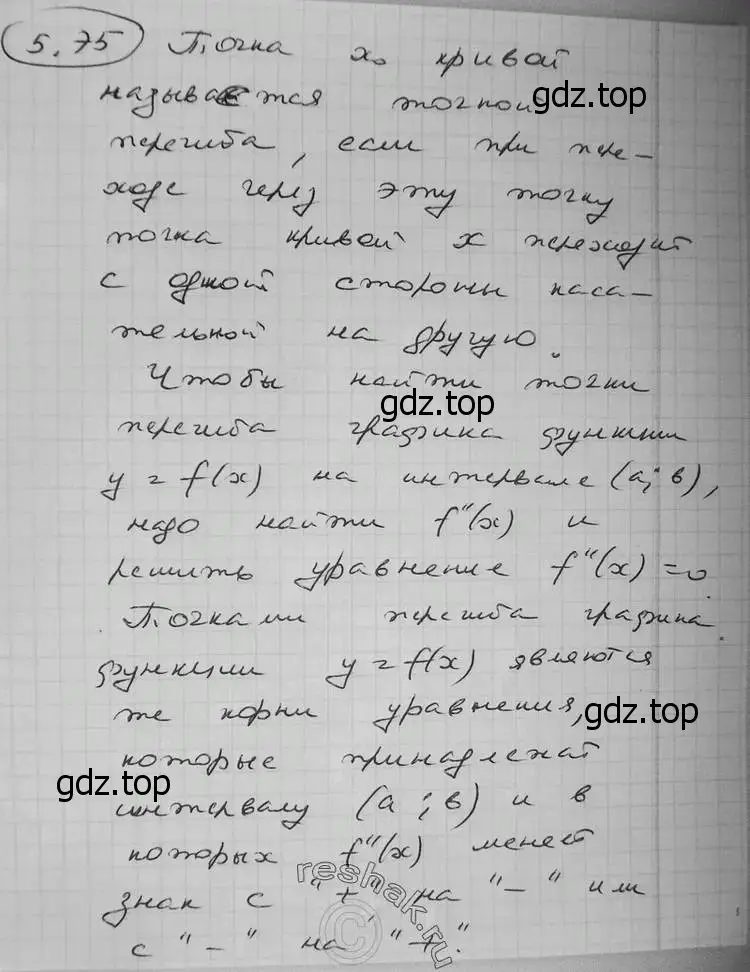 5.75 Точка x₀ кривой
называется точкой
gdz.top
перегиба, если при пере-
ходе через эту точку
точка кривой x переходит
с одной стороны каса-
тельной на другую.
Чтобы найти точки
gdz.top
перегиба графика функции
y = f(x) на интервале (a; в),
надо найти f″(x) и
решить уравнение f″(x) = 0.
Точками перегиба графика
функции y = f(x) являются
те корни уравнения,
gdz.top
которые принадлежат
gdz.top
интервалу (a; в) и в
которых f″(x) меняет
знак с "+" на "–" или
с "–" на "+".
reshak.ru
©